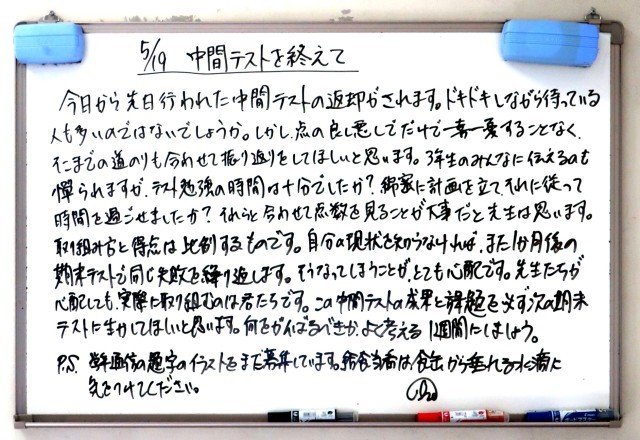 5/19 中間テストを終えて
今日から先日行われた中間テストの返却がされます。ドキドキしながら待っている
人も多いのではないでしょうか。しかし、点の良し悪しでだけで一喜一憂することなく、
そこまでの道のりも合わせて振り返りをしてほしいと思います。3年生のみんなに伝えるのも
憚られますが、テスト勉強の時間は十分でしたか?綿密に計画を立て、それに従って
時間を過ごせましたか?それらと合わせて点数を見ることが大事だと先生は思います。
取り組み方と得点は比例するものです。自分の現状を知らなければ、また1か月後の
期末テストで同じ失敗を繰り返します。そうなってしまうことが、とても心配です。先生たちが
心配しても、実際に取り組むのは君たちです。この中間テストの成果と課題を必ず次の期末
テストに生かしてほしいと思います。何をがんばるべきか、よく考える1週間にしましょう。
P.S. 学年通信の題字のイラストをまだ募集しています。給食当番は食缶から垂れる水滴に
気をつけてください。